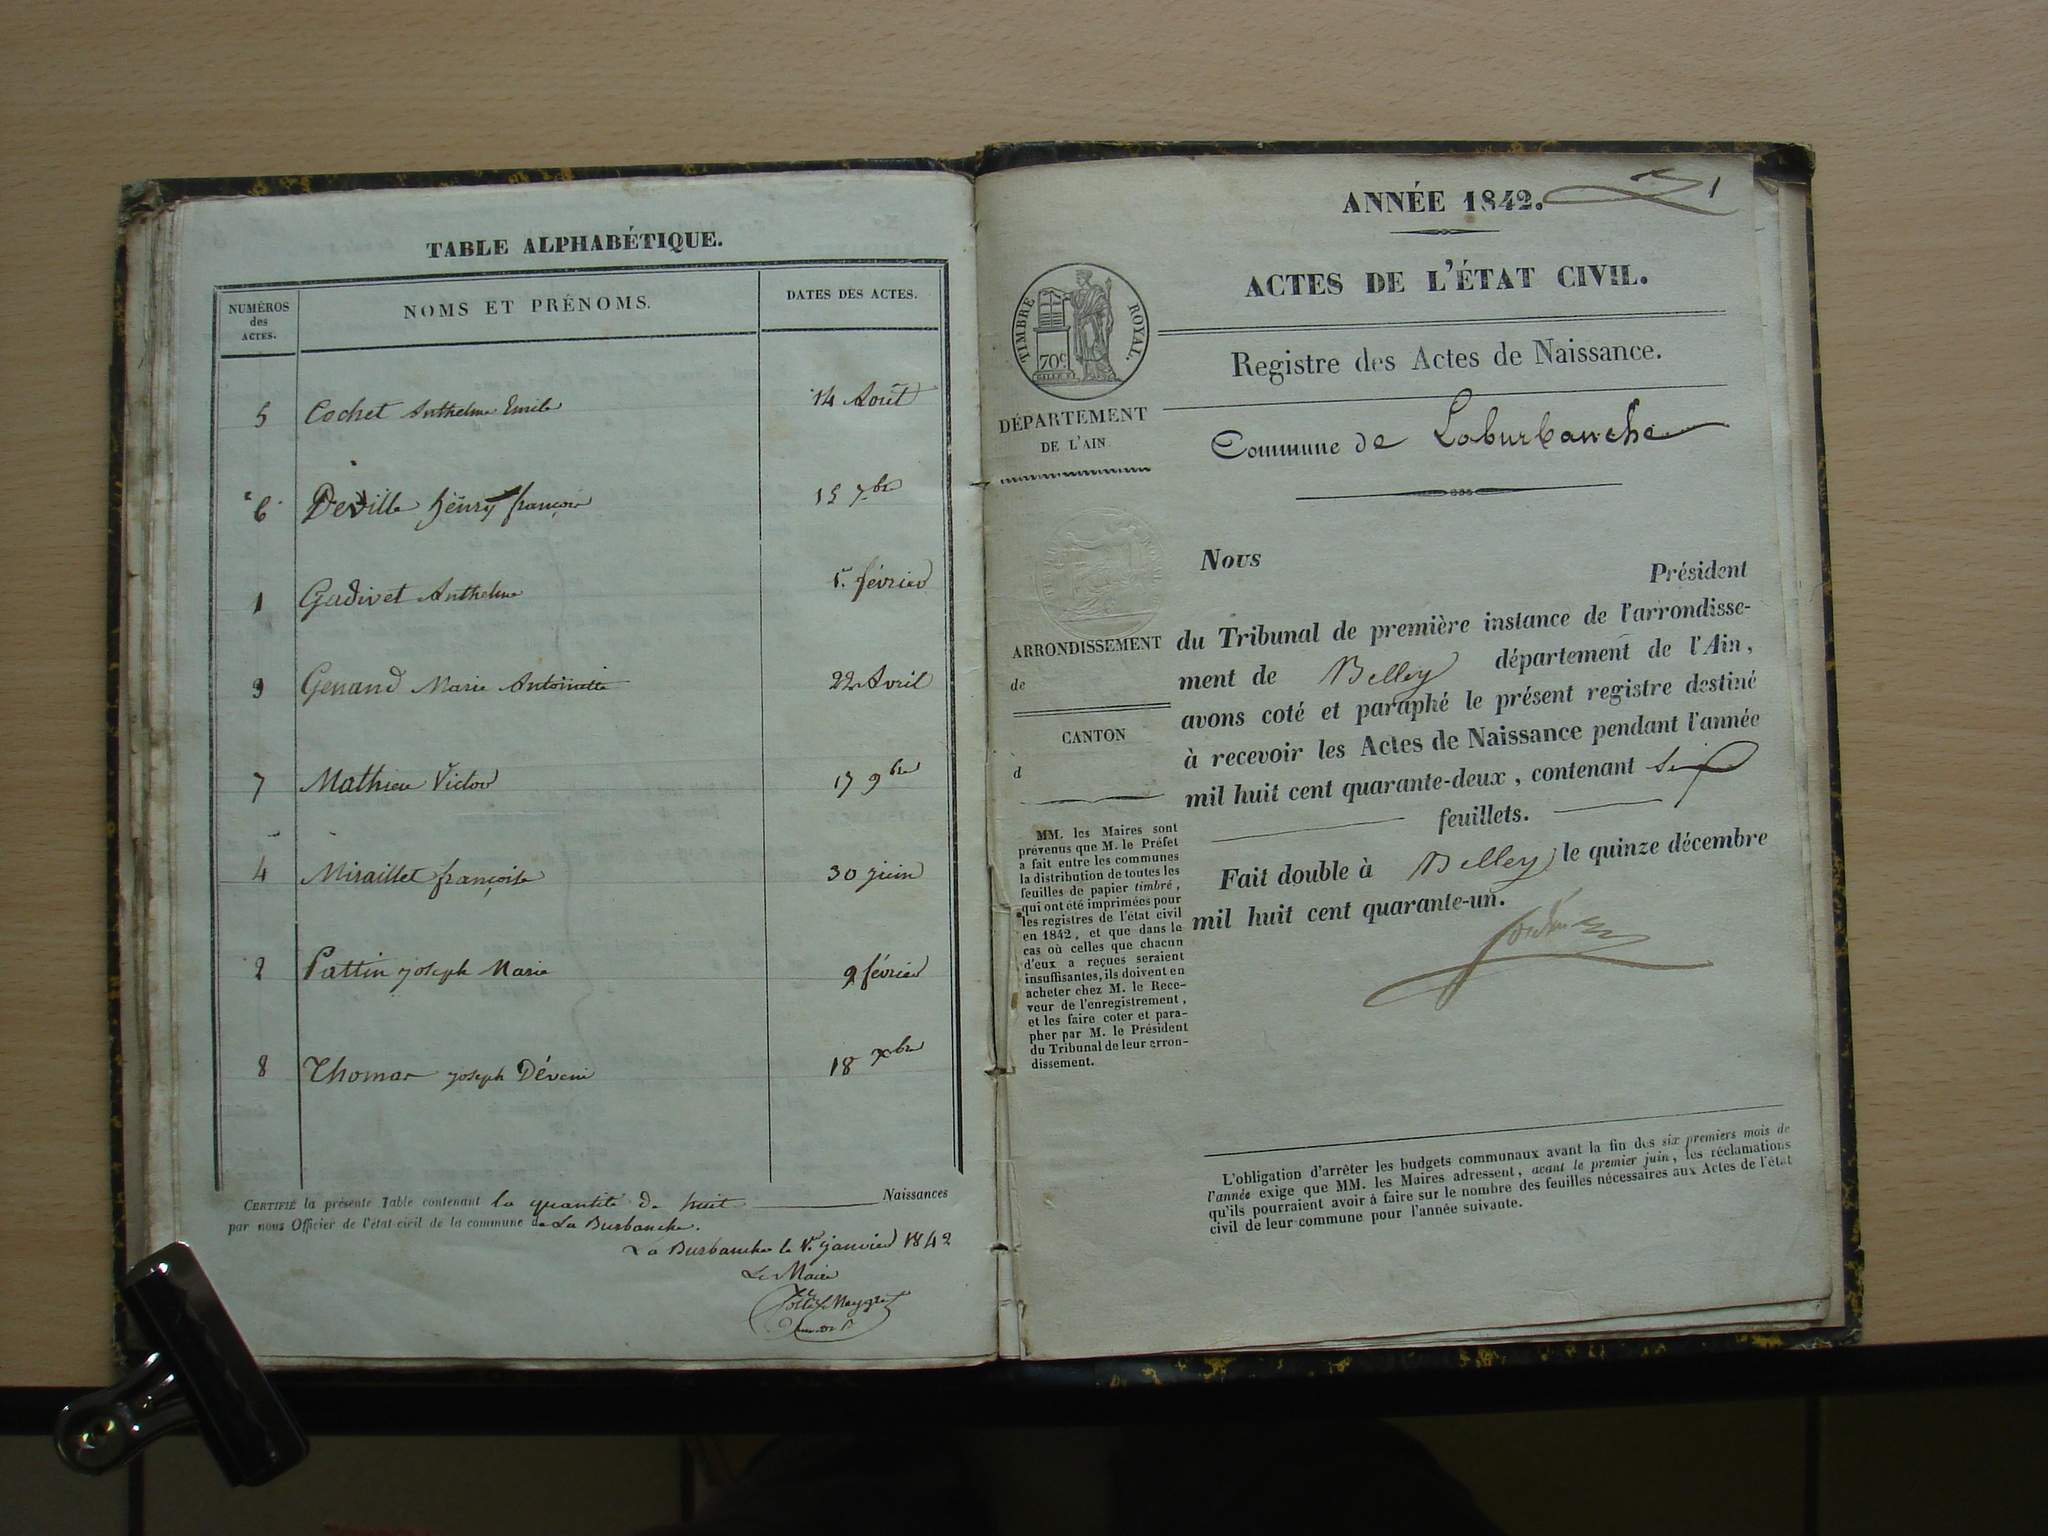 TABLE ALPHABÉTIQUE.
NUMÉROS des ACTES. NOMS ET PRÉNOMS. DATES DES ACTES.
5 Cochet Anthelme Emile 14 Août
6 Deville henry françois 15 7bre
1 Gadivet Anthelme 1er février
3 Genand Marie Antoinette 22 Avril
7 Mathieu Victor 17 9bre
4 Miraillet françoise 30 juin
2 Pattin joseph Marie 9 février
8 Thomas joseph 18 xbre
CERTIFIÉ la présente Table contenant la quantité de huit Naissances
par nous Officier de l'état civil de la commune de La Burbanche.
La Burbanche le 1er janvier 1842
Le Maire
1
ANNÉE 1842.
ACTES DE L'ÉTAT CIVIL.
TIMBRE ROYAL.
70c
Registre des Actes de Naissance.
DÉPARTEMENT
DE L'AIN
Commune de Laburbanche
Nous Président
du Tribunal de première instance de l'arrondisse-
ment de Belley département de l'Ain,
avons coté et paraphé le présent registre destiné
à recevoir les Actes de Naissance pendant l'année
mil huit cent quarante-deux, contenant six
feuillets.
Fait double à Belley le quinze décembre
mil huit cent quarante-un.
ARRONDISSEMENT
de
CANTON
d
MM. les Maires sont
prévenus que M. le Préfet
a fait entre les communes
la distribution de toutes les
feuilles de papier timbré,
qui ont été imprimées pour
les registres de l'état civil
en 1842, et que dans le
cas où celles que chacun
d'eux a reçues seraient
insuffisantes, ils doivent en
acheter chez M. le Rece-
veur de l'enregistrement,
et les faire coter et para-
pher par M. le Président
du Tribunal de leur arron-
dissement.
L'obligation d'arrêter les budgets communaux avant la fin des six premiers mois de
l'année exige que MM. les Maires adressent, avant le premier juin, les réclamations
qu'ils pourraient avoir à faire sur le nombre des feuilles nécessaires aux Actes de l'état
civil de leur commune pour l'année suivante.